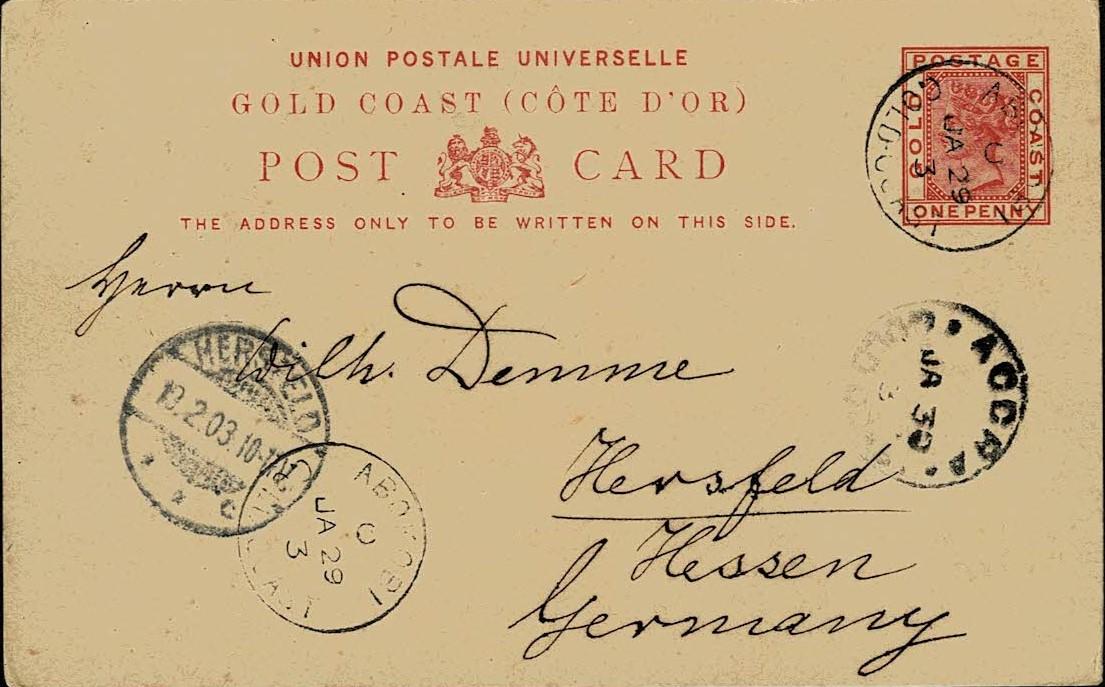 UNION POSTALE UNIVERSELLE
GOLD COAST (CÔTE D'OR)
POST CARD
THE ADDRESS ONLY TO BE WRITTEN ON THIS SIDE.
POSTAGE
GOLD
COAST
ONE PENNY
ABO
C
JA 29
3
GOLD COAST
Herrn
Wilh. Demme
Hersfeld
Hessen
Germany
HERSFELD
10.2.03 10-11
c
ABOKOBI
C
JA 29
3
GOLD COAST
ACCRA
JA 30
3